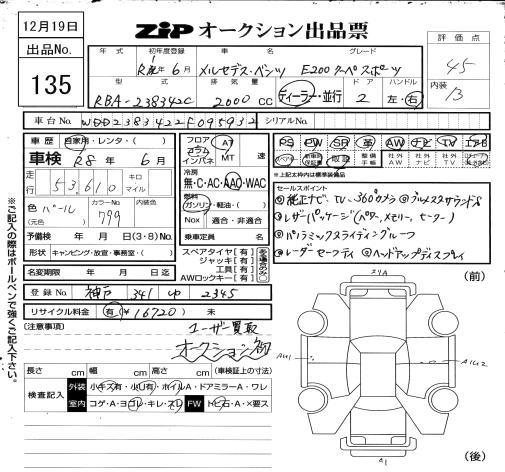 12月19日
ZIP オークション出品票
評価点
4.5
内装
B
出品No.
135
年式 初年度登録 車名 グレード
R元年6月 メルセデス・ベンツ E200クーペスポーツ
型式 排気量 ドア ハンドル
RBA-238342C 2000 CC ディーラー・並行 2 左・右
車台No. WDD2383422F095932 シリアルNo.
車歴 自家用・レンタ・( )
車検 R8年6月
走行 53,610 キロ マイル
色 パール (元色) カラーNo. 799 内装色
予備検 年 月 日(3・8)No.
形状 キャンピング・放宣・事務室・( )
名変期限 年 月 日迄
フロア コラム インパネ AT MT 速
冷房 無・C・AC・AAC・WAC
燃料 ガソリン・軽油・( )
Nox 適合・非適合
乗車定員 名
スペアタイヤ[有]
ジャッキ[有]
工具[有]
AWロックキー[有]
PS PW SR 革 AW ナビ TV エアB
整備手帳 社外AW 社外ナビ 社外TV
※上記太枠内は標準装備品
セールスポイント
①純正ナビ・TV・360°カメラ
③レザーパッケージ(パワー、メモリー、ヒーター)
パノラミックスライディングルーフ
レーダーセーフティ ヘッドアップディスプレイ
登録No. 神戸 341 ゆ 2345
リサイクル料金 有(¥16720) 未
(注意事項)
ユーザー買取
オークション初
長さ cm 幅 cm 高さ cm (車検証上の寸法)
検査記入 外装 小キズ有・小凹有・ホイルA・ドアミラーA・ワレ
室内 コゲ・A・ヨゴレ・キレ・スレ FW トビ石・A・×要ス
※ご記入の際はボールペンで強くご記入下さい。
(前)
AU1
A1U2
A1
(後)